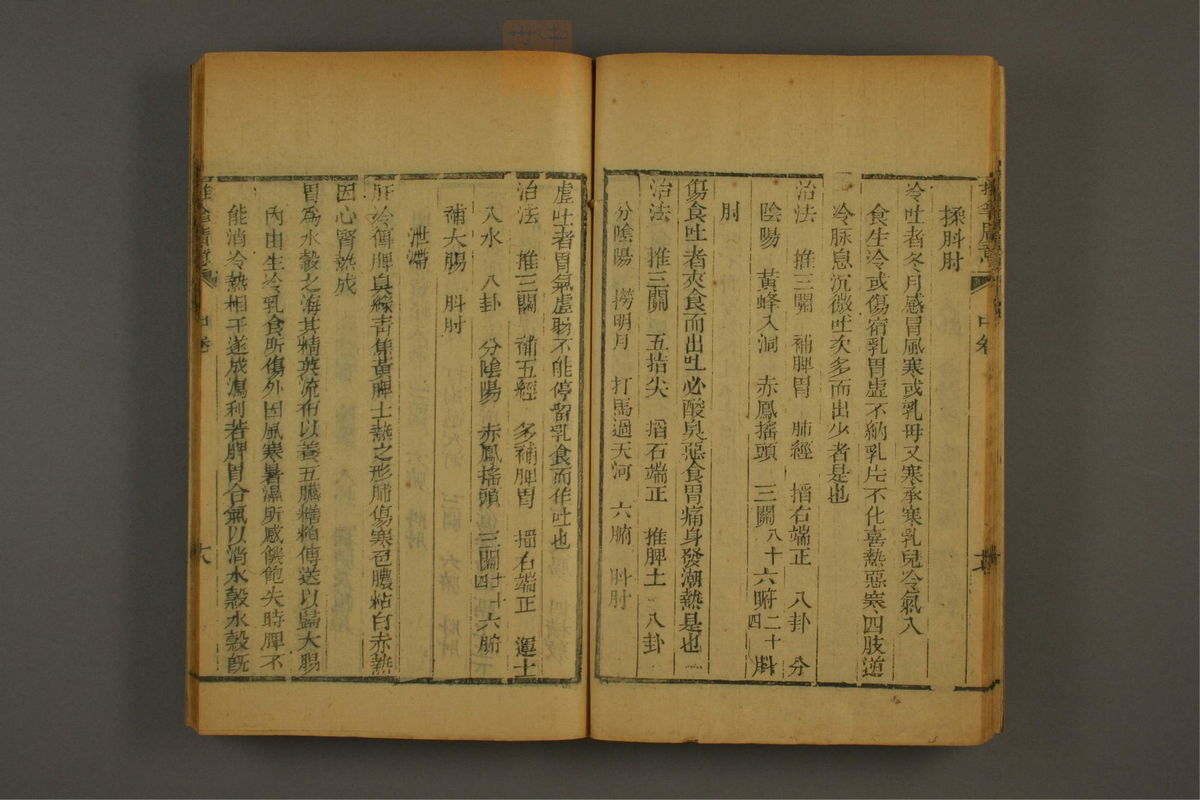 揉㪷肘
冷吐者冬月感冒風寒或乳母又寒承寒乳兒冷氣入
食生冷或傷宿乳胃虛不納乳片不化喜熱惡寒四肢逆
冷脉息沉微吐次多而出少者是也
治法 推三關 補脾胃 肺經 掐右端正 八卦 分
陰陽 黃蜂入洞 赤鳳搖頭 三關八十六腑二十四 㪷
肘
傷食吐者夾食而出吐必酸臭惡食胃痛身發潮熱是也
治法 推三關 五指尖 掐右端正 推脾土 八卦
分陰陽 撈明月 打馬過天河 六腑 㪷肘
虛吐者胃氣虛弱不能停留乳食而作吐也
治法 推三關 補五經 多補脾胃 掐右端正 運土
入水 八卦 分陰陽 赤鳳搖頭 三關 六腑
補大腸 㪷肘
泄瀉
肝冷傳脾臭綠青焦黃脾土熱之形肺傷寒色膿粘白赤熱
因心腎熱成
胃為水穀之海其精英流布以養五臟糟粕傳送以歸大腸
內由生冷乳食所傷外因風寒暑濕所感饑飽失時脾不
能消冷熱相干遂成瀉利若脾胃合氣以消水穀水穀旣
中卷